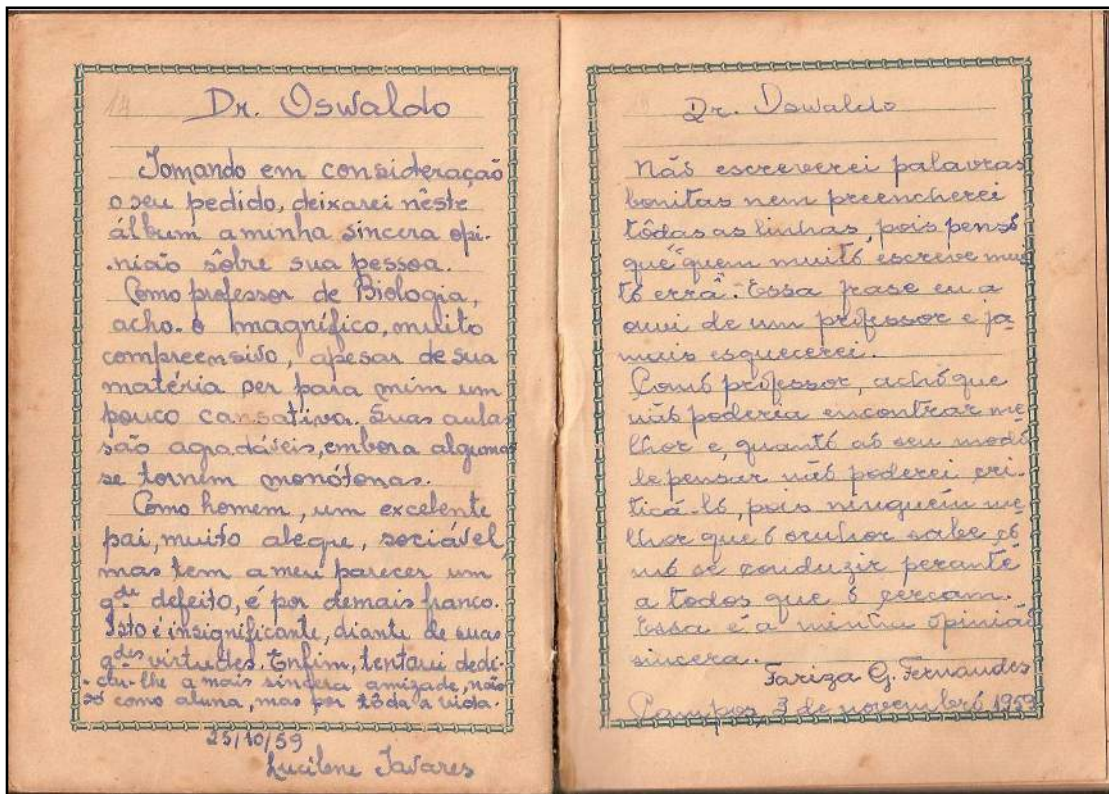 14
Dr. Oswaldo
Tomando em consideração
o seu pedido, deixarei nêste
álbum a minha sincera opi-
-nião sôbre sua pessoa.
Como professor de Biologia,
acho-o magnífico, muito
compreensivo, apesar de sua
matéria ser para mim um
pouco cansativa. Suas aulas
são agradáveis, embora algumas
se tornem monótonas.
Como homem, um excelente
pai, muito alegre, sociável,
mas tem a meu parecer um
gde defeito, é por demais franco.
Isto é insignificante, diante de suas
gdes virtudes. Enfim, tentarei dedi-
-car-lhe a mais sincera amizade, não
só como aluna, mas por tôda a vida.
25/10/59
Lucilene Tavares
Dr. Oswaldo
Não escreverei palavras
bonitas nem preencherei
tôdas as linhas, pois penso
que "quem muito escreve mui
to erra". Essa frase eu a
ouvi de um professor e ja
mais esquecerei.
Como professor, acho que
não poderia encontrar me
lhor e, quanto ao seu modo
de pensar não poderei cri-
ticá-lo, pois ninguém me
lhor que o senhor sabe co
mo se conduzir perante
a todos que o cercam.
Essa é a minha opinião
sincera.
Tariza G. Fernandes
Campos, 3 de novembro 1959